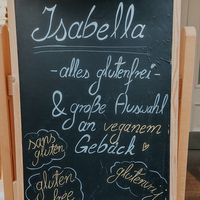 Isabella
-alles glutenfrei-
& große Auswahl
an veganem
Gebäck
sans
gluten
gluten
free
glutenvrij